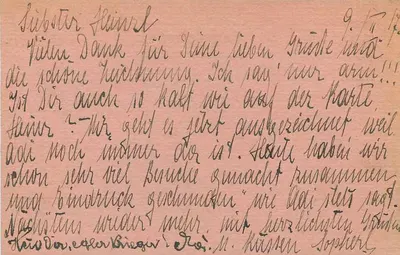 Liebster Heinzl
9. II. 17
Vielen Dank für Deine lieben Grüße und
die schöne Zeichnung. Ich sag' nur arm!!!
Ist Dir auch so kalt wie auf der Karte
? Mir geht es jetzt ausgezeichnet weil
noch immer da ist. Heute haben wir
schon sehr viel Besuche gemacht zusammen
und "Eindruck geschunden" wie stets sagt.
Nächstens wieder mehr, mit herzlichsten Grüßen
u. Küssen